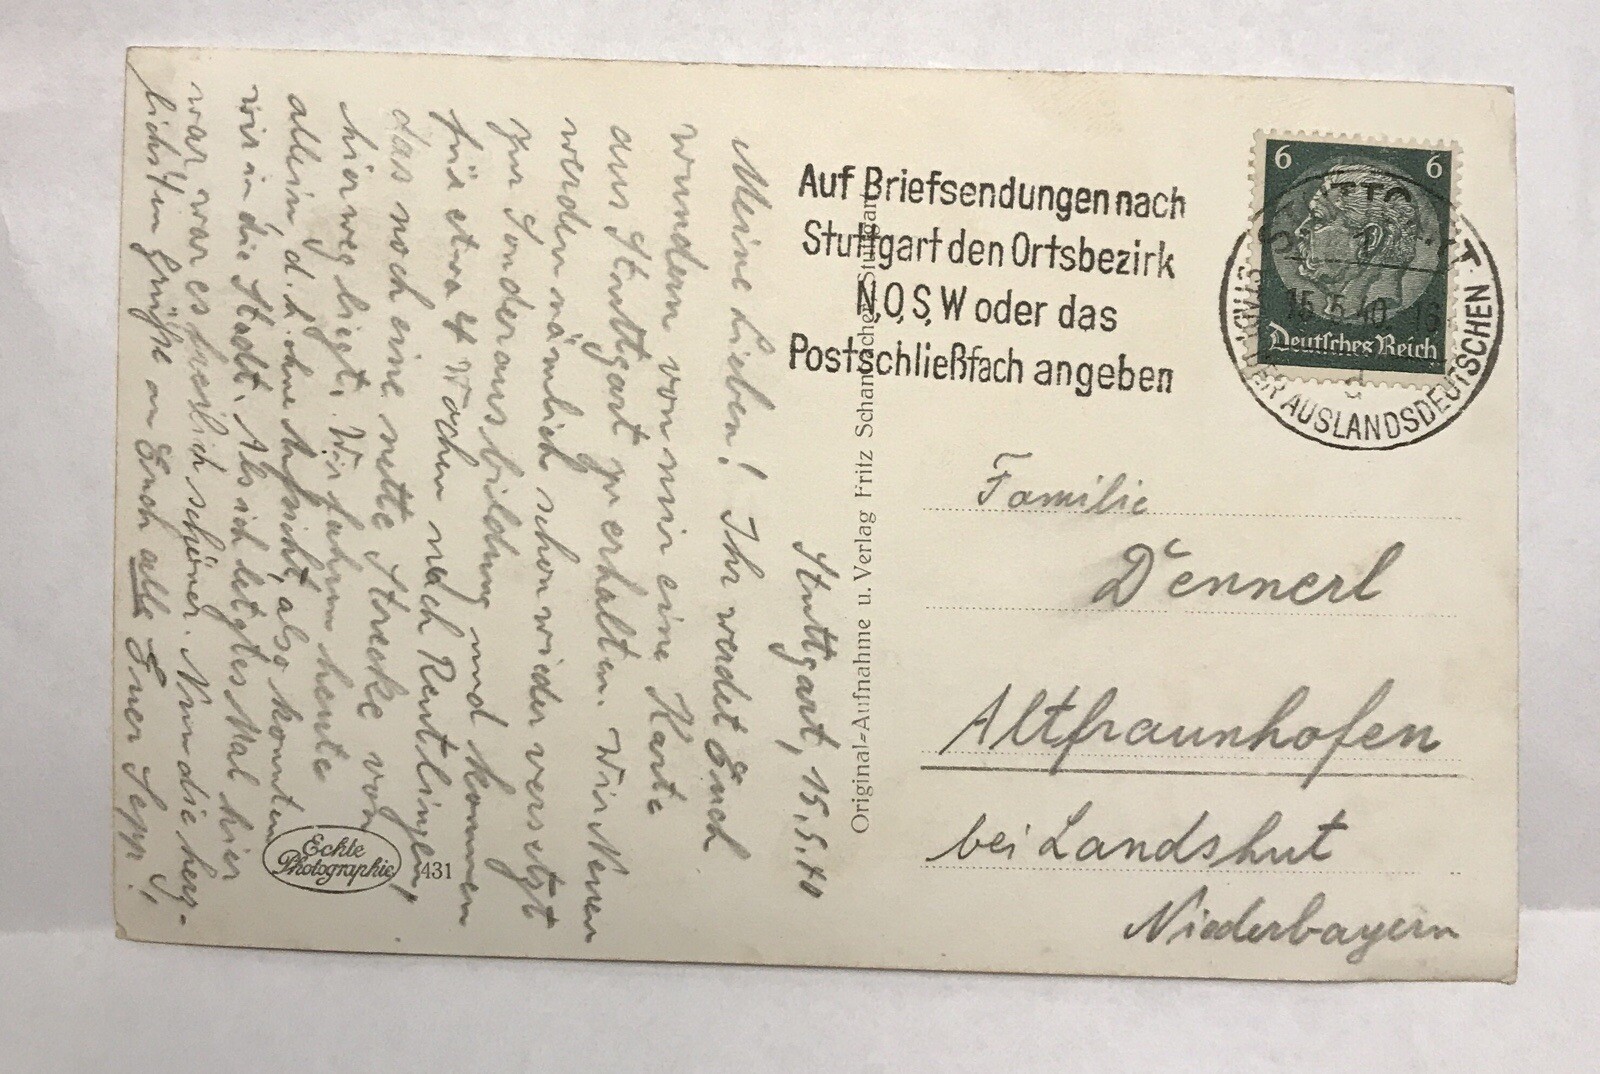 Stuttgart, 15.5.40
Meine Lieben! Ihr werdet Euch
wundern von mir eine Karte
aus Stuttgart zu erhalten. Wir
werden nämlich schon wieder versetzt
zur Sonderausbildung und kommen
für etwa 4 Wochen nach Reutlingen,
das noch eine nette Strecke von
hier weg liegt. Wir fuhren heute
allein, d. h. ohne Aufsicht, also konnten
wir in die Stadt. Als ich letztes Mal hier
war, war es freilich schöner. Nun die herz-
lichsten Grüße an Euch alle Euer Sepp!
Echte
Photographie
431
Original=Aufnahme u. Verlag Fritz Schanbacher Stuttgart
Auf Briefsendungen nach
Stuttgart den Ortsbezirk
N, O, S, W oder das
Postschließfach angeben
6 6
Deutsches Reich
STUTTGART
15.5.40 16
STADT DER AUSLANDSDEUTSCHEN
Familie
Dennerl
Altfraunhofen
bei Landshut
Niederbayern